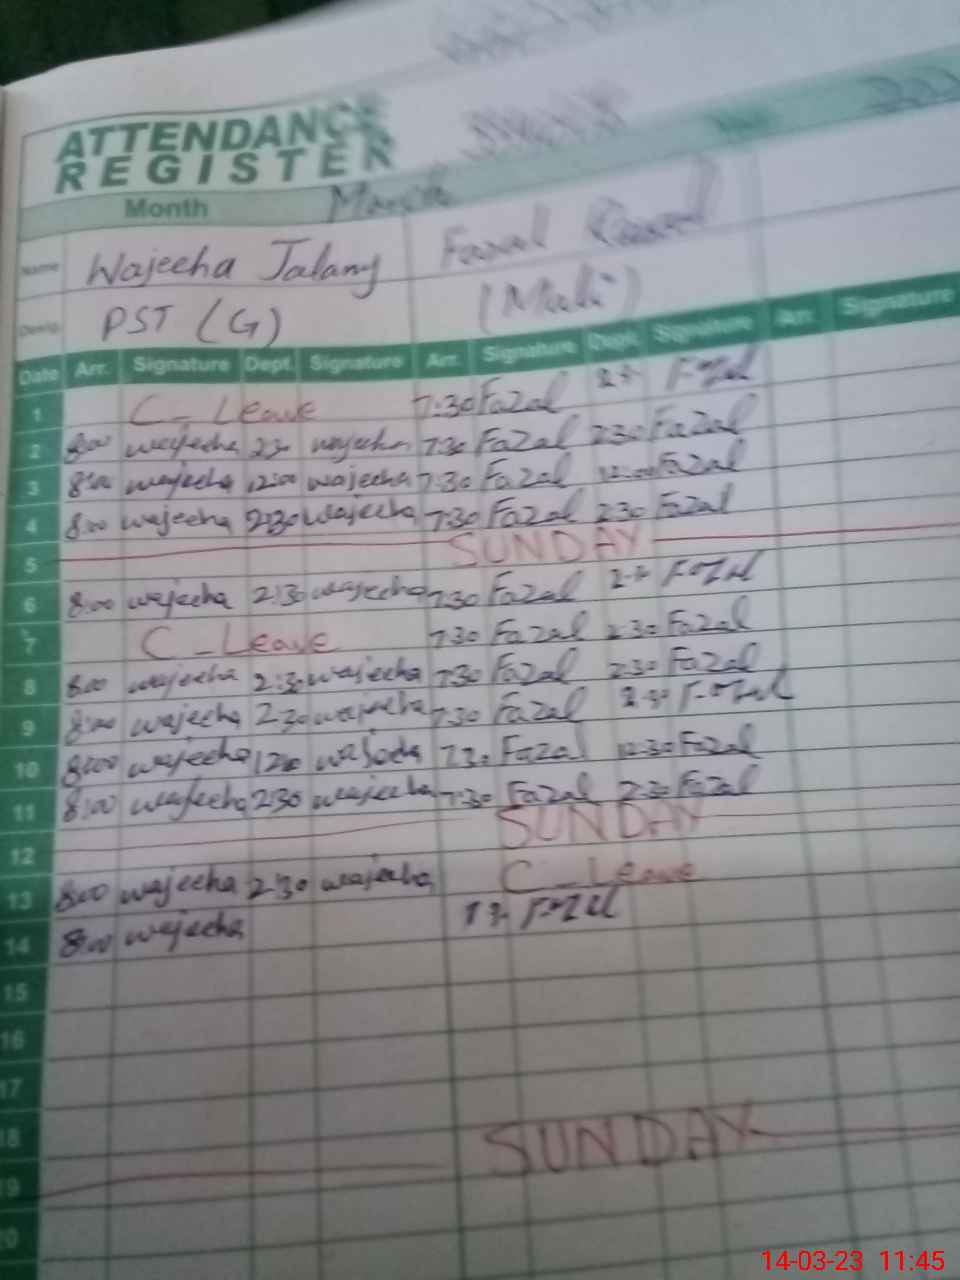 ATTENDANCE
REGISTER
Month March
Name Wajeeha Fazal
Desig. PST (G) (Mali)
Date Arr. Signature Dept. Signature Arr. Signature Dept. Signature Arr. Signature
1 C_Leave 7:30 Fazal Fazal
2 8:00 wajeeha 2:30 wajeeha 7:30 Fazal 2:30 Fazal
3 8:00 wajeeha 12:00 wajeeha 7:30 Fazal 12:00 Fazal
4 8:00 wajeeha 2:30 wajeeha 7:30 Fazal 2:30 Fazal
5 SUNDAY
6 8:00 wajeeha 2:30 wajeeha 7:30 Fazal Fazal
7 C_Leave 7:30 Fazal 2:30 Fazal
8 8:00 wajeeha 2:30 wajeeha 7:30 Fazal 2:30 Fazal
9 8:00 wajeeha 2:30 wajeeha 7:30 Fazal Fazal
10 8:00 wajeeha wajeeha 7:30 Fazal 12:30 Fazal
11 8:00 wajeeha 2:30 wajeeha 7:30 Fazal 2:30 Fazal
12 SUNDAY
13 8:00 wajeeha 2:30 wajeeha C_Leave
14 8:00 wajeeha Fazal
15
16
17
18
19 SUNDAY
20
14-03-23 11:45